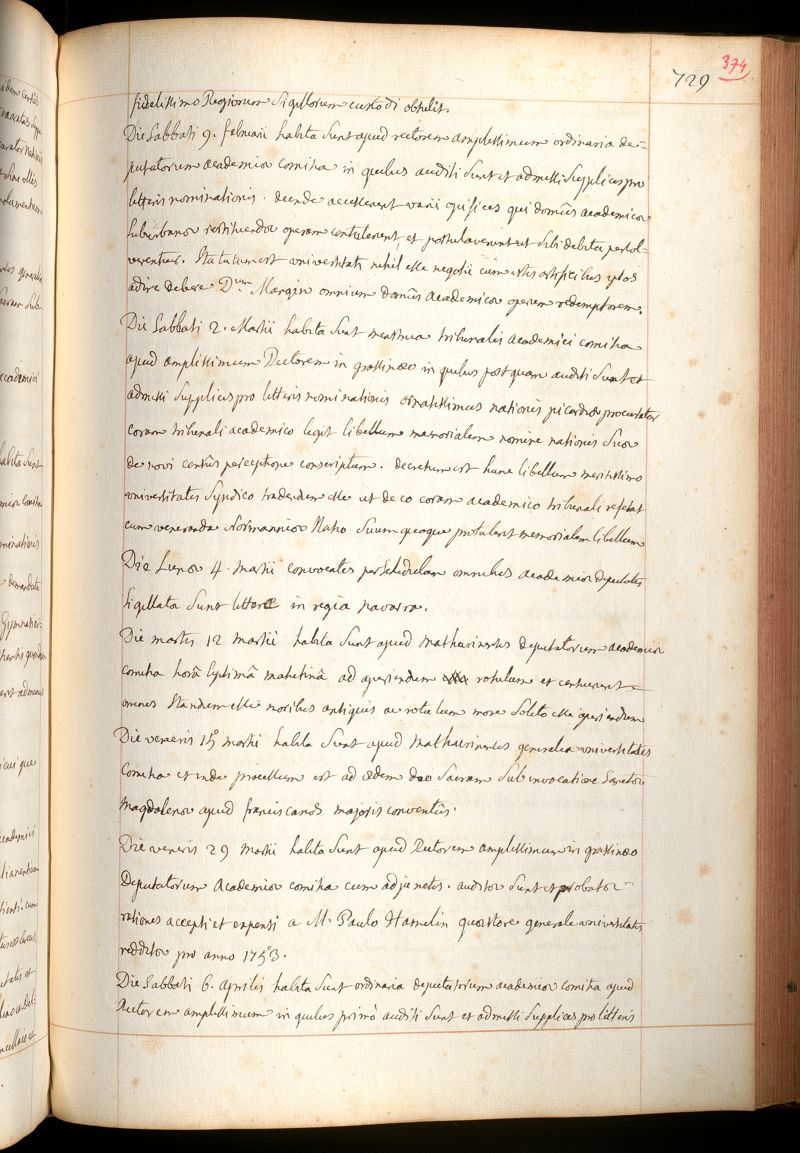 374
729
fidelissimo Regiorum Sigillorum custodi obtulit.
Die Sabbati 9. februarii habita sunt apud rectorem amplissimum ordinaria de-
putatorum academiæ comitia in quibus auditi sunt et admissi supplices pro
litteris nominationis. deinde accesserunt varii opifices qui domûs academicæ
suburbanæ restituendæ operam contulerant, et postulaverunt ut sibi debita persol-
verentur. Statutum est universitati nihil esse negotii cum istis artificibus ipsos
adire debere Dum Margin omnium domûs academicæ operum redemptorem.
Die Sabbati 2. Martii habita sunt menstrua tribunalis academici comitia
apud amplissimum Rectorem in grassinæo in quibus postquam auditi sunt et
admissi supplices pro litteris nominationis ornatissimus nationis picardiæ procurator
coram tribunali academico legit libellum memorialem nomine nationis suæ
de novi censûs perceptione conscriptum. decretum est hunc libellum meritissimo
universitatis Syndico tradendum esse ut de eo coram academico tribunali referat
cum veneranda Normanniæ Natio suum quoque protulerit memorialem libellum
Die Lunæ 4. martii convocatis per schedulam omnibus academiæ deputatis
sigillata sunt litteræ in regia navarra.
Die martis 12 martii habita sunt apud mathurinenses deputatorum academiæ
comitia horâ septimâ matutinâ ad aperiendum rotulum et censuerunt
omnes standum esse moribus antiquis ac rotulum more solito esse aperiendum
Die veneris 15 martii habita sunt apud mathurinenses generalia universitatis
Comitia et inde processum est ad ædem deo sacram sub invocatione Sanctæ
Magdalenæ apud franciscanos majoris conventûs.
Die veneris 29 martii habita sunt apud Rectorem amplissimum in grassinæo
Deputatorum Academiæ comitia cum adjunctis. auditæ sunt et probatæ
rationes accepti et expensi a M. Paulo Hamelin quæstore generale universitatis
redditæ pro anno 1753.
Die Sabbati 6. aprilis habita sunt ordinaria deputatorum academiæ comitia apud
Rectorem amplissimum in quibus primò auditi sunt et admissi supplices pro litteris